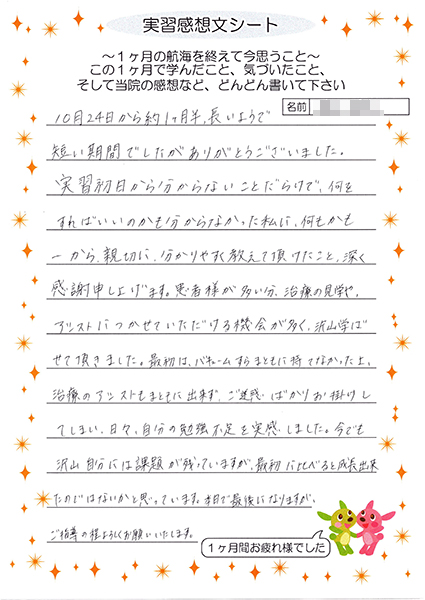 実習感想文シート
～1ヶ月の航海を終えて今思うこと～
この1ヶ月で学んだこと、気づいたこと、
そして当院の感想など、どんどん書いて下さい
名前
10月24日から約1ヶ月半、長いようで
短い期間でしたがありがとうございました。
実習初日から分からないことだらけで、何を
すればいいのかも分からなかった私に、何もかも
一から、親切に、分かりやすく教えて頂けたこと、深く
感謝申し上げます。患者様が多い分、治療の見学や、
アシストにつかせていただける機会が多く、沢山学ば
せて頂きました。最初は、バキュームすらまともに持てなかった上、
治療のアシストもまともに出来ず、ご迷惑ばかりお掛けし
てしまい、日々、自分の勉強不足を実感しました。今でも
沢山自分には課題が残っていますが、最初に比べると成長出来
たのではないかと思っています。本日で最後になりますが、
ご指導の程よろしくお願いいたします。
1ヶ月間お疲れ様でした